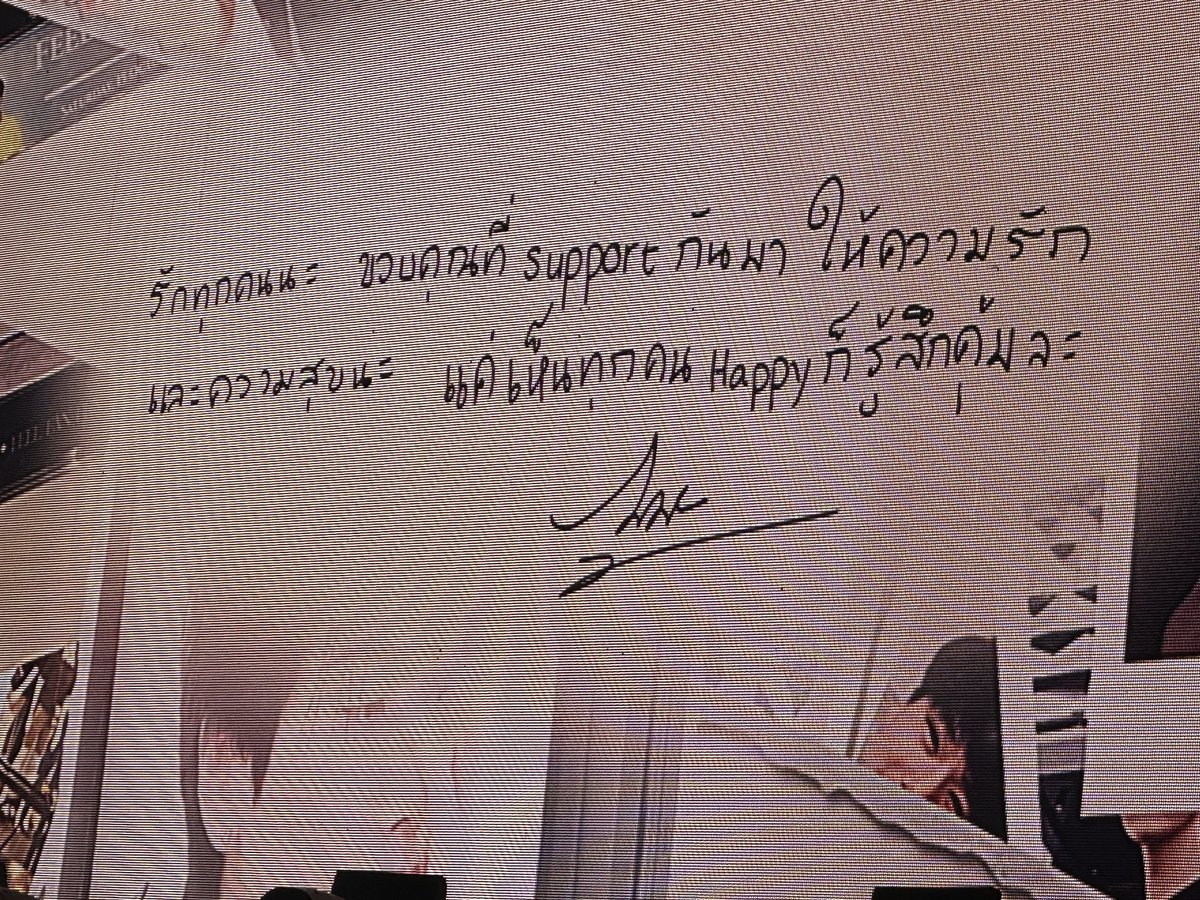 รักทุกคนนะ ขอบคุณที่ support กันมา ให้ความรัก
และความสุขนะ แค่เห็นทุกคน Happy ก็รู้สึกคุ้มละ